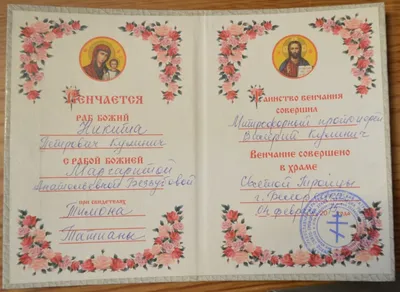 Венчается
раб Божий
Никита
Петрович Кулинич
с рабой Божией
Маргаритой
Анатольевной
при свидетелях
Тимона
Татианы
Таинство венчания
совершил
Митрофорный протоиерей
Валерий Кулинич
Венчание совершено
в храме
Святой Троицы
г. Белорецка
04 февраля